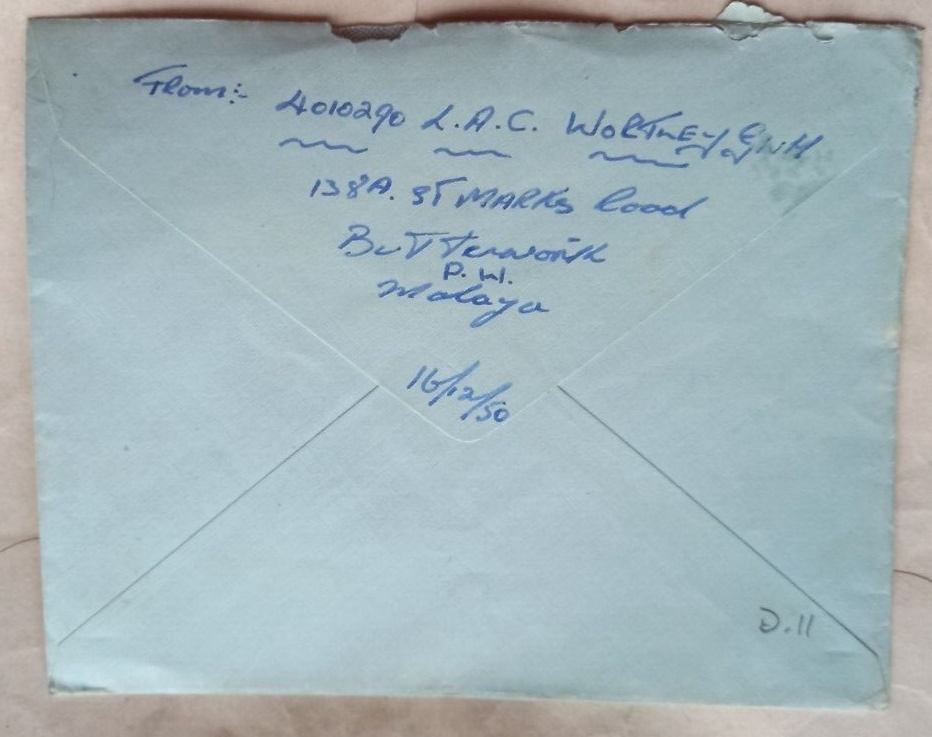 From:- 4010290 L.A.C. WORTLEY GNH
138A. ST MARKS Road
Butterworth
P.W.
Malaya
16/12/50
D.11